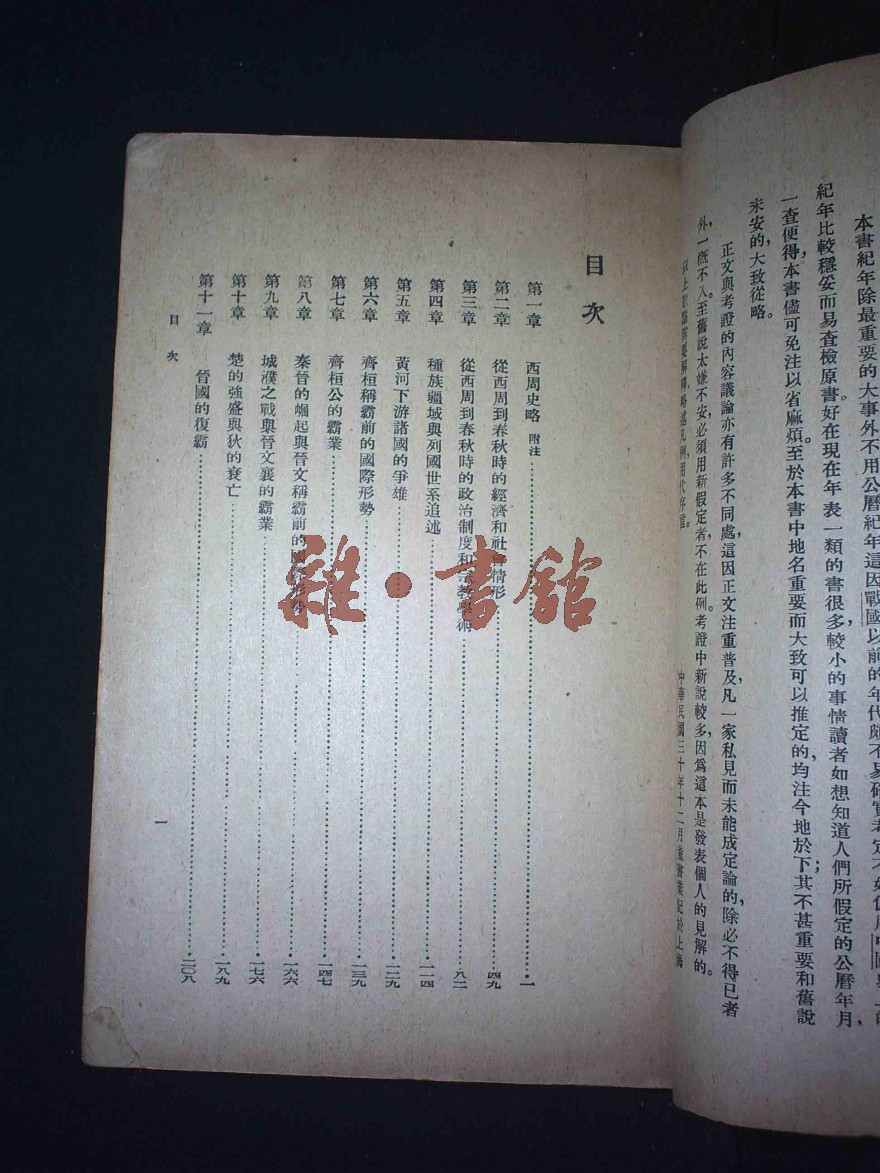 紀年比較穩妥而易查檢原書好在現在年表一類的書很多,較小的事情讀者如想知道人們所假定的公曆年月,
一查便得,本書儘可免注以省麻煩。至於本書中地名重要而大致可以推定的,均注今地於下;其不甚重要和舊說
未安的,大致從略。
正文與考證的內容議論亦有許多不同處,這因正文注重普及,凡一家私見而未能成定論的,除必不得已者
外,一概不入。至舊說太嫌不安,必須用新假定者,不在此例。考證中新說較多,因爲這本是發表個人的見解的。
以上數點需要解釋,略述凡例,用代序言。
中華民國三十年十二月童書業記於上海
目次
第一章 西周史略 附注 一
第二章 從西周到春秋時的經濟和社會情形 四九
第三章 從西周到春秋時的政治制度和宗教學術 八二
第四章 種族疆域與列國世系追述 一一四
第五章 黃河下游諸國的爭雄 一二九
第六章 齊桓稱霸前的國際形勢 一三九
第七章 齊桓公的霸業 一四七
第八章 秦晉的崛起與晉文稱霸前的國際形勢 一六六
第九章 城濮之戰與晉文襄的霸業 一七六
第十章 楚的強盛與狄的衰亡 一八九
第十一章 晉國的復霸 二〇八
目次
一
雜·書館